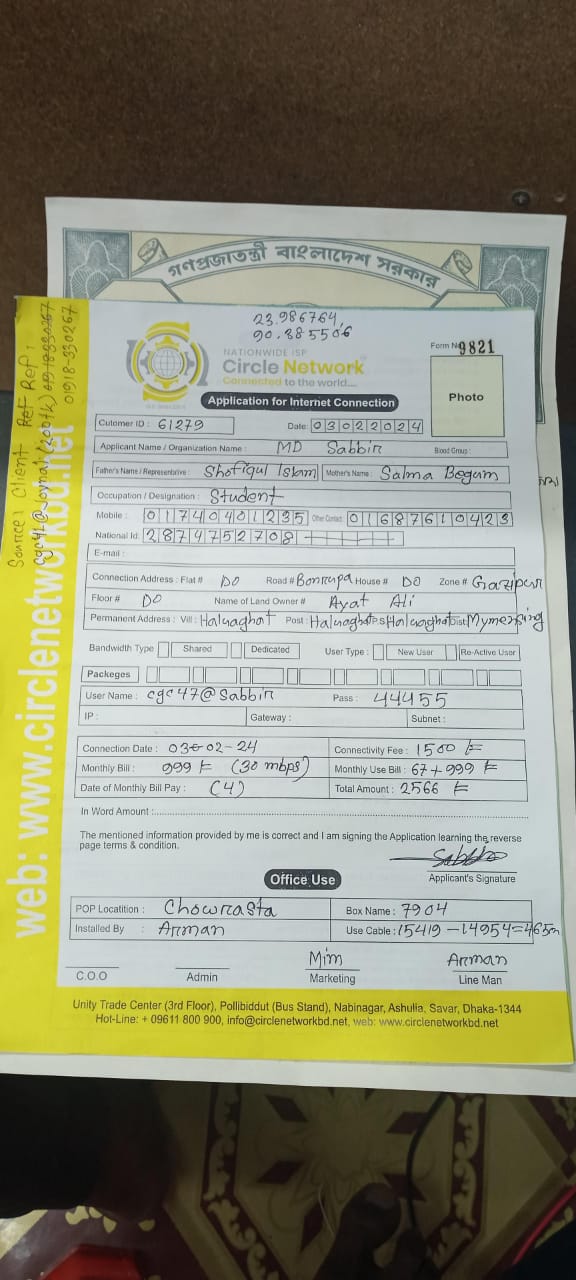 গণপ্রজাতন্ত্রী বাংলাদেশ সরকার
23.986764,
90.385506
NATIONWIDE ISP
Circle Network
Connected to the world....
Form No 9821
Photo
Application for Internet Connection
Cutomer ID : 61279 Date: 03022024
Applicant Name / Organization Name : MD Sabbir Blood Group :
Father's Name / Representive : Shofiqul Islam Mother's Name : Salma Begum
Occupation / Designation : Student
Mobile : 01740401235 Other Contact : 01687610423
National Id: 2874752708
E-mail :
Connection Address : Flat # DO Road # Bonrupa House # DO Zone # Gazipur
Floor # DO Name of Land Owner # Ayat Ali
Permanent Address : Vill : Haluaghat Post : Haluaghat P.S Haluaghat Dist: Mymensing
Bandwidth Type Shared Dedicated User Type : New User Re-Active User
Packeges
User Name : cgc47@Sabbir Pass : 44455
IP : Gateway : Subnet :
Connection Date : 03-02-24 Connectivity Fee : 1500 ৳
Monthly Bill : 999 ৳ (30 mbps) Monthly Use Bill : 67+999 ৳
Date of Monthly Bill Pay : (4) Total Amount : 2566 ৳
In Word Amount :
The mentioned information provided by me is correct and I am signing the Application learning the reverse
page terms & condition.
Applicant's Signature
Office Use
POP Locatition : Chowrasta Box Name : 7904
Installed By : Arman Use Cable : 15419-14954=465m
Mim Arman
C.O.O Admin Marketing Line Man
Unity Trade Center (3rd Floor), Pollibiddut (Bus Stand), Nabinagar, Ashulia, Savar, Dhaka-1344
Hot-Line: + 09611 800 900, info@circlenetworkbd.net, web: www.circlenetworkbd.net
web: www.circlenetworkbd.net
Source: Client Ref Ref:
cgc47@Joynal (200tk) 01918330267
01918-330267